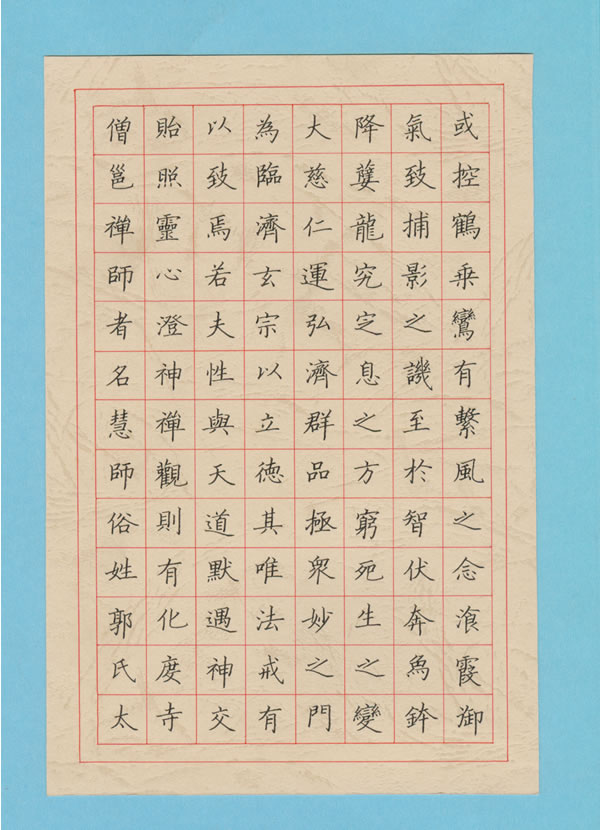 或控鶴乗鸞有繫風之念湌霞御
氣致捕影之譏至於智伏奔象鉢
降孽龍究㝎息之方窮死生之變
大慈仁運弘濟群品極衆妙之門
為臨濟玄宗以立徳其唯法戒有
以致焉若夫性與天道默遇神交
貽照靈心澄神禪觀則有化度寺
僧邕禪師者名慧師俗姓郭氏太